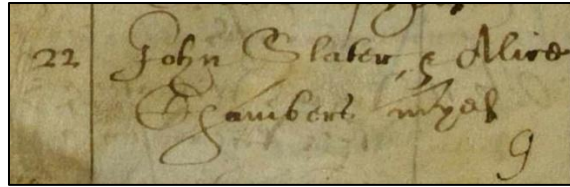 22 John Slater & Alice
Chambers
9